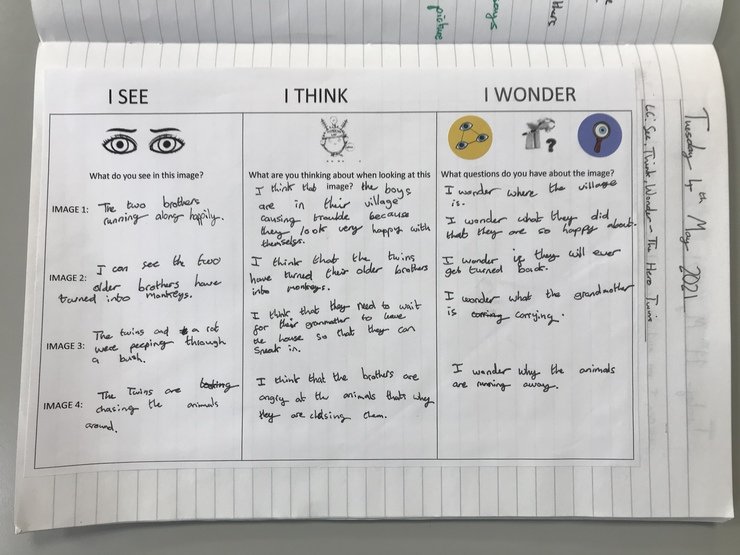 I SEE
I THINK
I WONDER
What do you see in this image?
What are you thinking about when looking at this image?
What questions do you have about the image?
IMAGE 1:
The two brothers
running along happily.
I think that the boys
are in their village
causing trouble because
they look very happy with
themselves.
I wonder where the village
is.
I wonder what they did
that they are so happy about.
IMAGE 2:
I can see the two
older brothers have
turned into monkeys.
I think that the twins
have turned their older brothers
into monkeys.
I wonder if they will ever
get turned back.
IMAGE 3:
The twins and a rat
were peeping through
a bush.
I think that they need to wait
for their grandmother to leave
the house so that they can
sneak in.
I wonder what the grandmother
is carrying.
IMAGE 4:
The Twins are looking
chasing the animals
around.
I think that the brothers are
angry at the animals thats why
they are chasing them.
I wonder why the animals
are running away.
Tuesday 4th May 2021
LC: See, Think, Wonder - The Hero Twins
picture